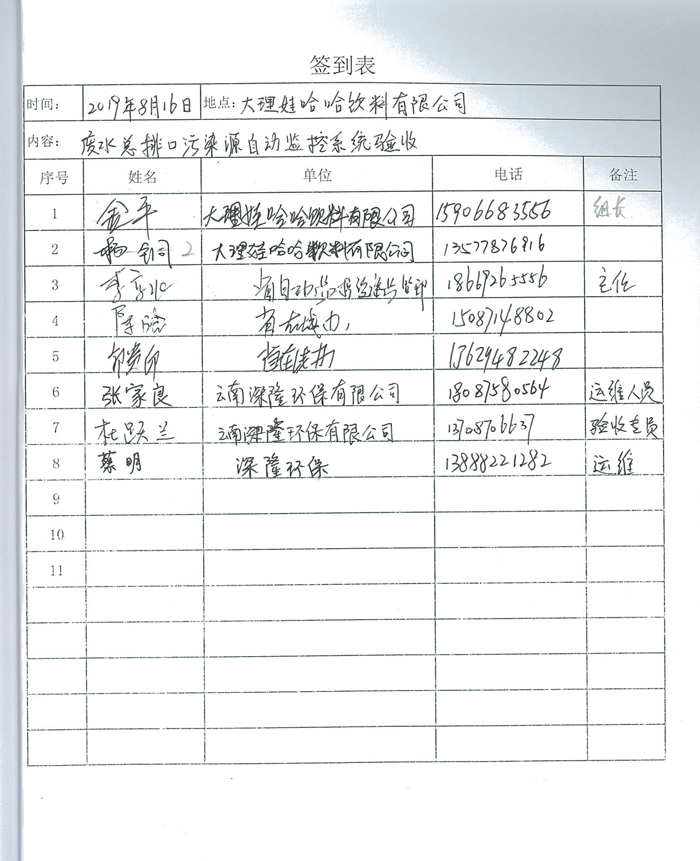 签到表
时间: 2019年8月16日 地点: 大理娃哈哈饮料有限公司
内容: 废水总排口污染源自动监控系统验收
序号 姓名 单位 电话 备注
1 金平 大理娃哈哈饮料有限公司 15906683556 组长
2 大理娃哈哈饮料有限公司 13577876916
3 18669265556 主任
4 陈晗 省在线办 15087148802
5 省在线办 13629482248
6 张家良 云南深隆环保有限公司 18087580564 运维人员
7 杜跃兰 云南深隆环保有限公司 13708706637 验收专员
8 蔡明 深隆环保 13888221282 运维
9
10
11